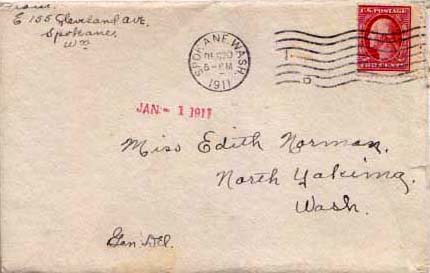 From:
E 155 Cleveland Ave.
Spokane,
Wn
SPOKANE, WASH.
5-PM
1911
U.S. POSTAGE
TWO CENTS
JAN - 1 1911
Miss Edith Norman.
North Yakima,
Wash.
Gen Del.